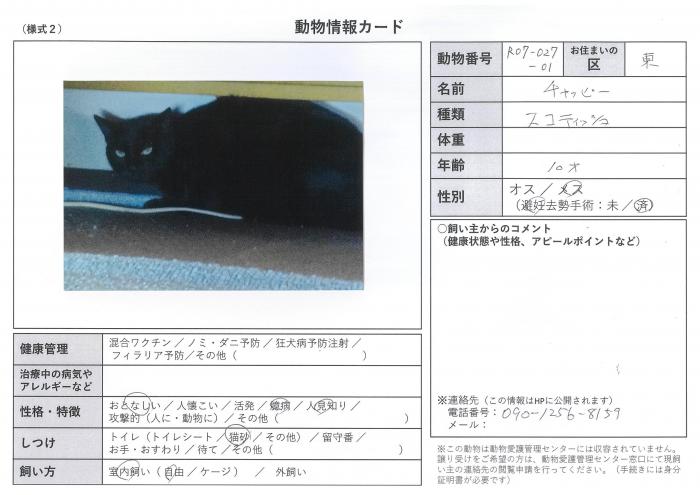 （様式２）
動物情報カード
動物番号 R07-027-01 お住まいの区 東
名前 チャッピー
種類 スコティッシュ
体重
年齢 10才
性別 オス ／ メス
（避妊去勢手術：未 ／ 済）
〇飼い主からのコメント
（健康状態や性格、アピールポイントなど）
※連絡先（この情報はHPに公開されます）
電話番号： 090-1256-8159
メール：
健康管理 混合ワクチン ／ ノミ・ダニ予防 ／ 狂犬病予防注射 ／
フィラリア予防 ／その他（ ）
治療中の病気や
アレルギーなど
性格・特徴 おとなしい ／ 人懐こい ／ 活発 ／ 臆病 ／ 人見知り ／
攻撃的（人に・動物に）／ その他（ ）
しつけ トイレ（トイレシート ／ 猫砂 ／ その他）／ 留守番 ／
お手・おすわり ／ 待て ／ その他（ ）
飼い方 室内飼い（ 自由 ／ ケージ ） ／ 外飼い
※この動物は動物愛護管理センターには収容されていません。
譲り受けをご希望の方は、動物愛護管理センター窓口にて現飼
い主の連絡先の閲覧申請を行ってください。（手続きには身分
証明書が必要です）